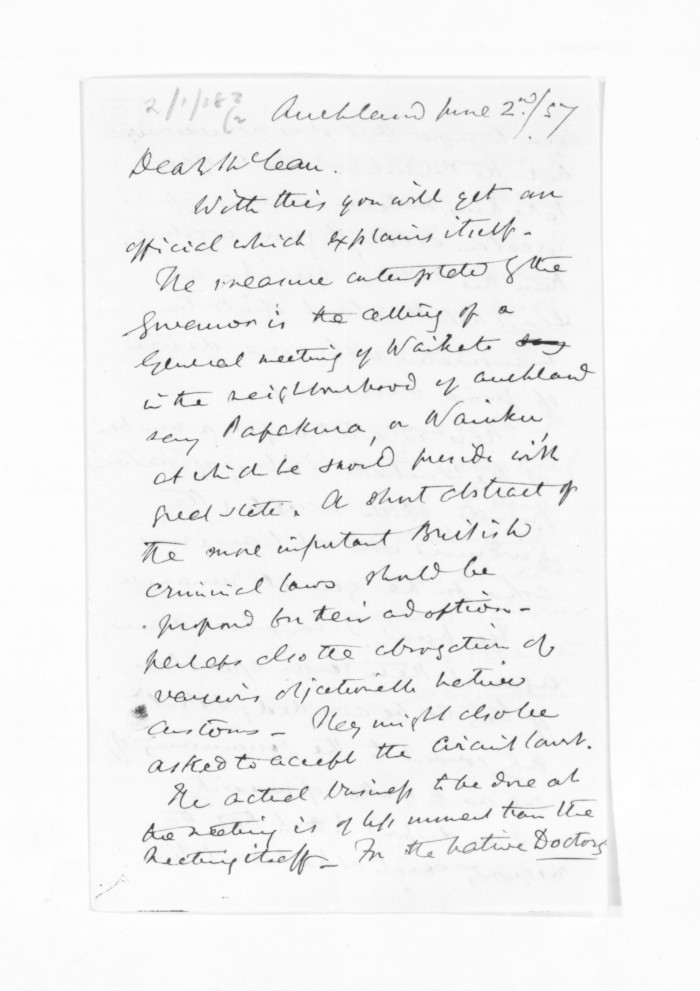 Auckland June 2nd/57
Dear McLean.
With this you will get an
official which explains itself -
The measure contemplated by the
Governor is the calling of a
General meeting of Waikato say
in the neighbourhood of Auckland
say Papakura, or Waiuku,
at which he should preside with
great state. A short abstract of
the more important British
criminal laws should be
proposed for their adoption -
perhaps also the abrogation of
various objectionable native
customs - They might also be
asked to accept the Circuit Court.
The actual business to be done at
the meeting is of less moment than the
meeting itself - For the native Doctors